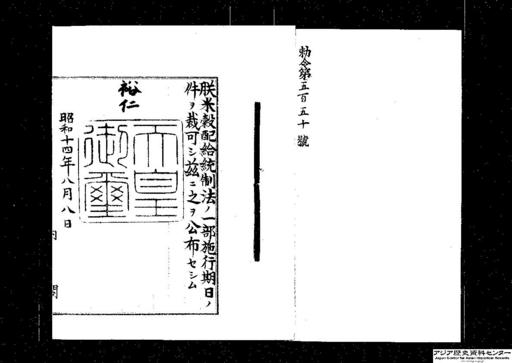 勅令第五百五十號
朕米穀配給統制法ノ一部施行期日ノ
件ヲ裁可シ茲ニ之ヲ公布セシム
裕仁
天皇
御璽
昭和十四年八月八日
内
閣
アジア歴史資料センター
Japan Center for Asian Historical Records